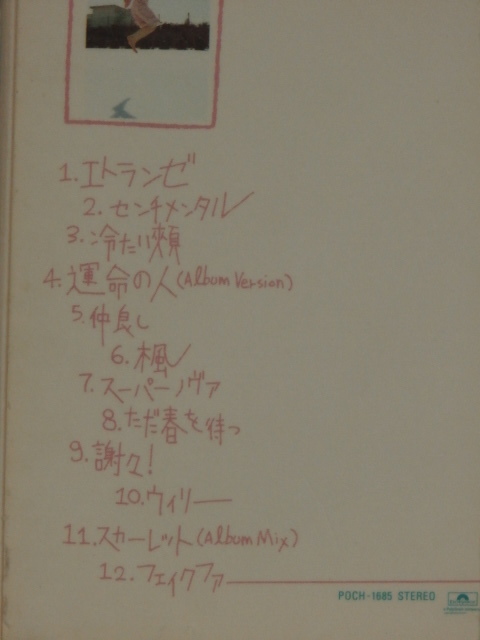 1.エトランゼ
2.センチメンタル
3.冷たい頬
4.運命の人(Album Version)
5.仲良し
6.楓
7.スーパーノヴァ
8.ただ春を待つ
9.謝々!
10.ウィリー
11.スカーレット(Album Mix)
12.フェイクファー
POCH-1685 STEREO